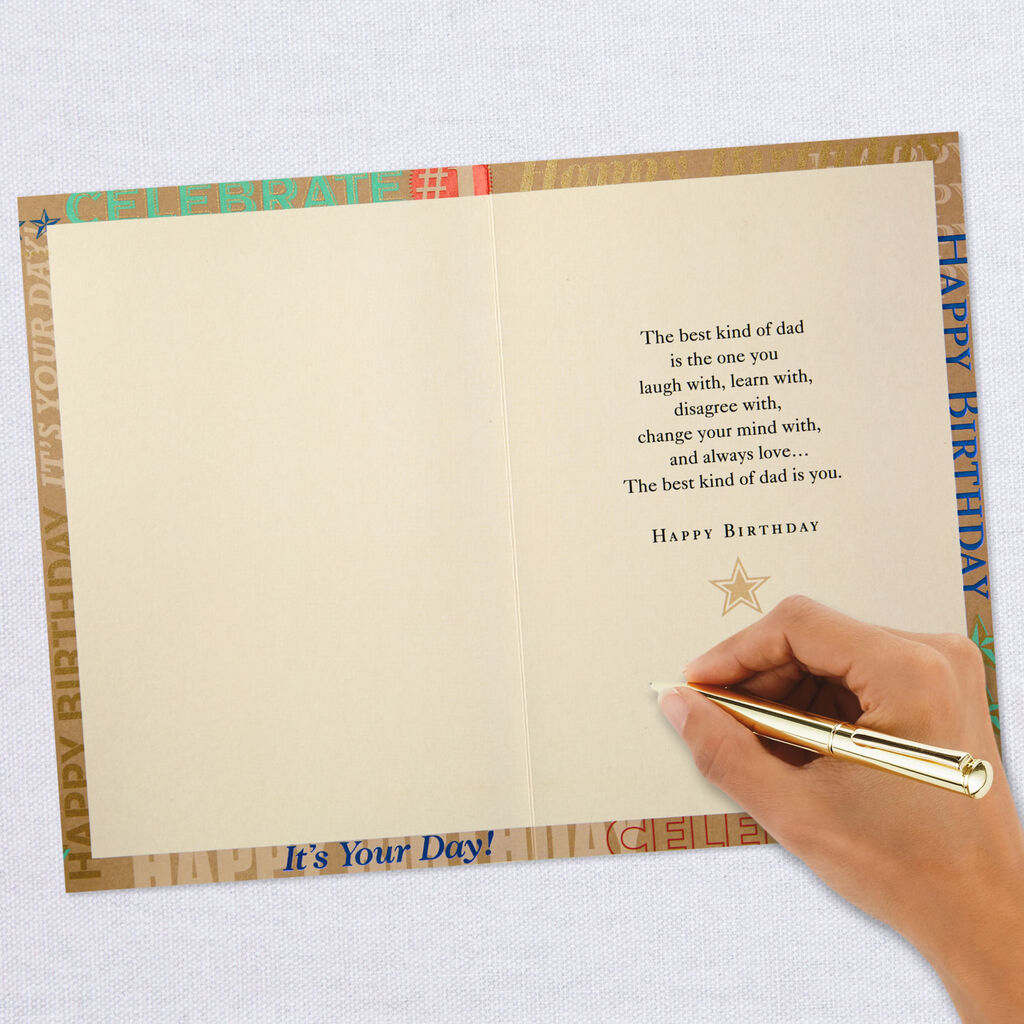 CELEBRATE #1
Happy Birthday
IT'S YOUR DAY!
HAPPY BIRTHDAY
HAPPY BIRTHDAY
The best kind of dad
is the one you
laugh with, learn with,
disagree with,
change your mind with,
and always love…
The best kind of dad is you.
HAPPY BIRTHDAY
It's Your Day!